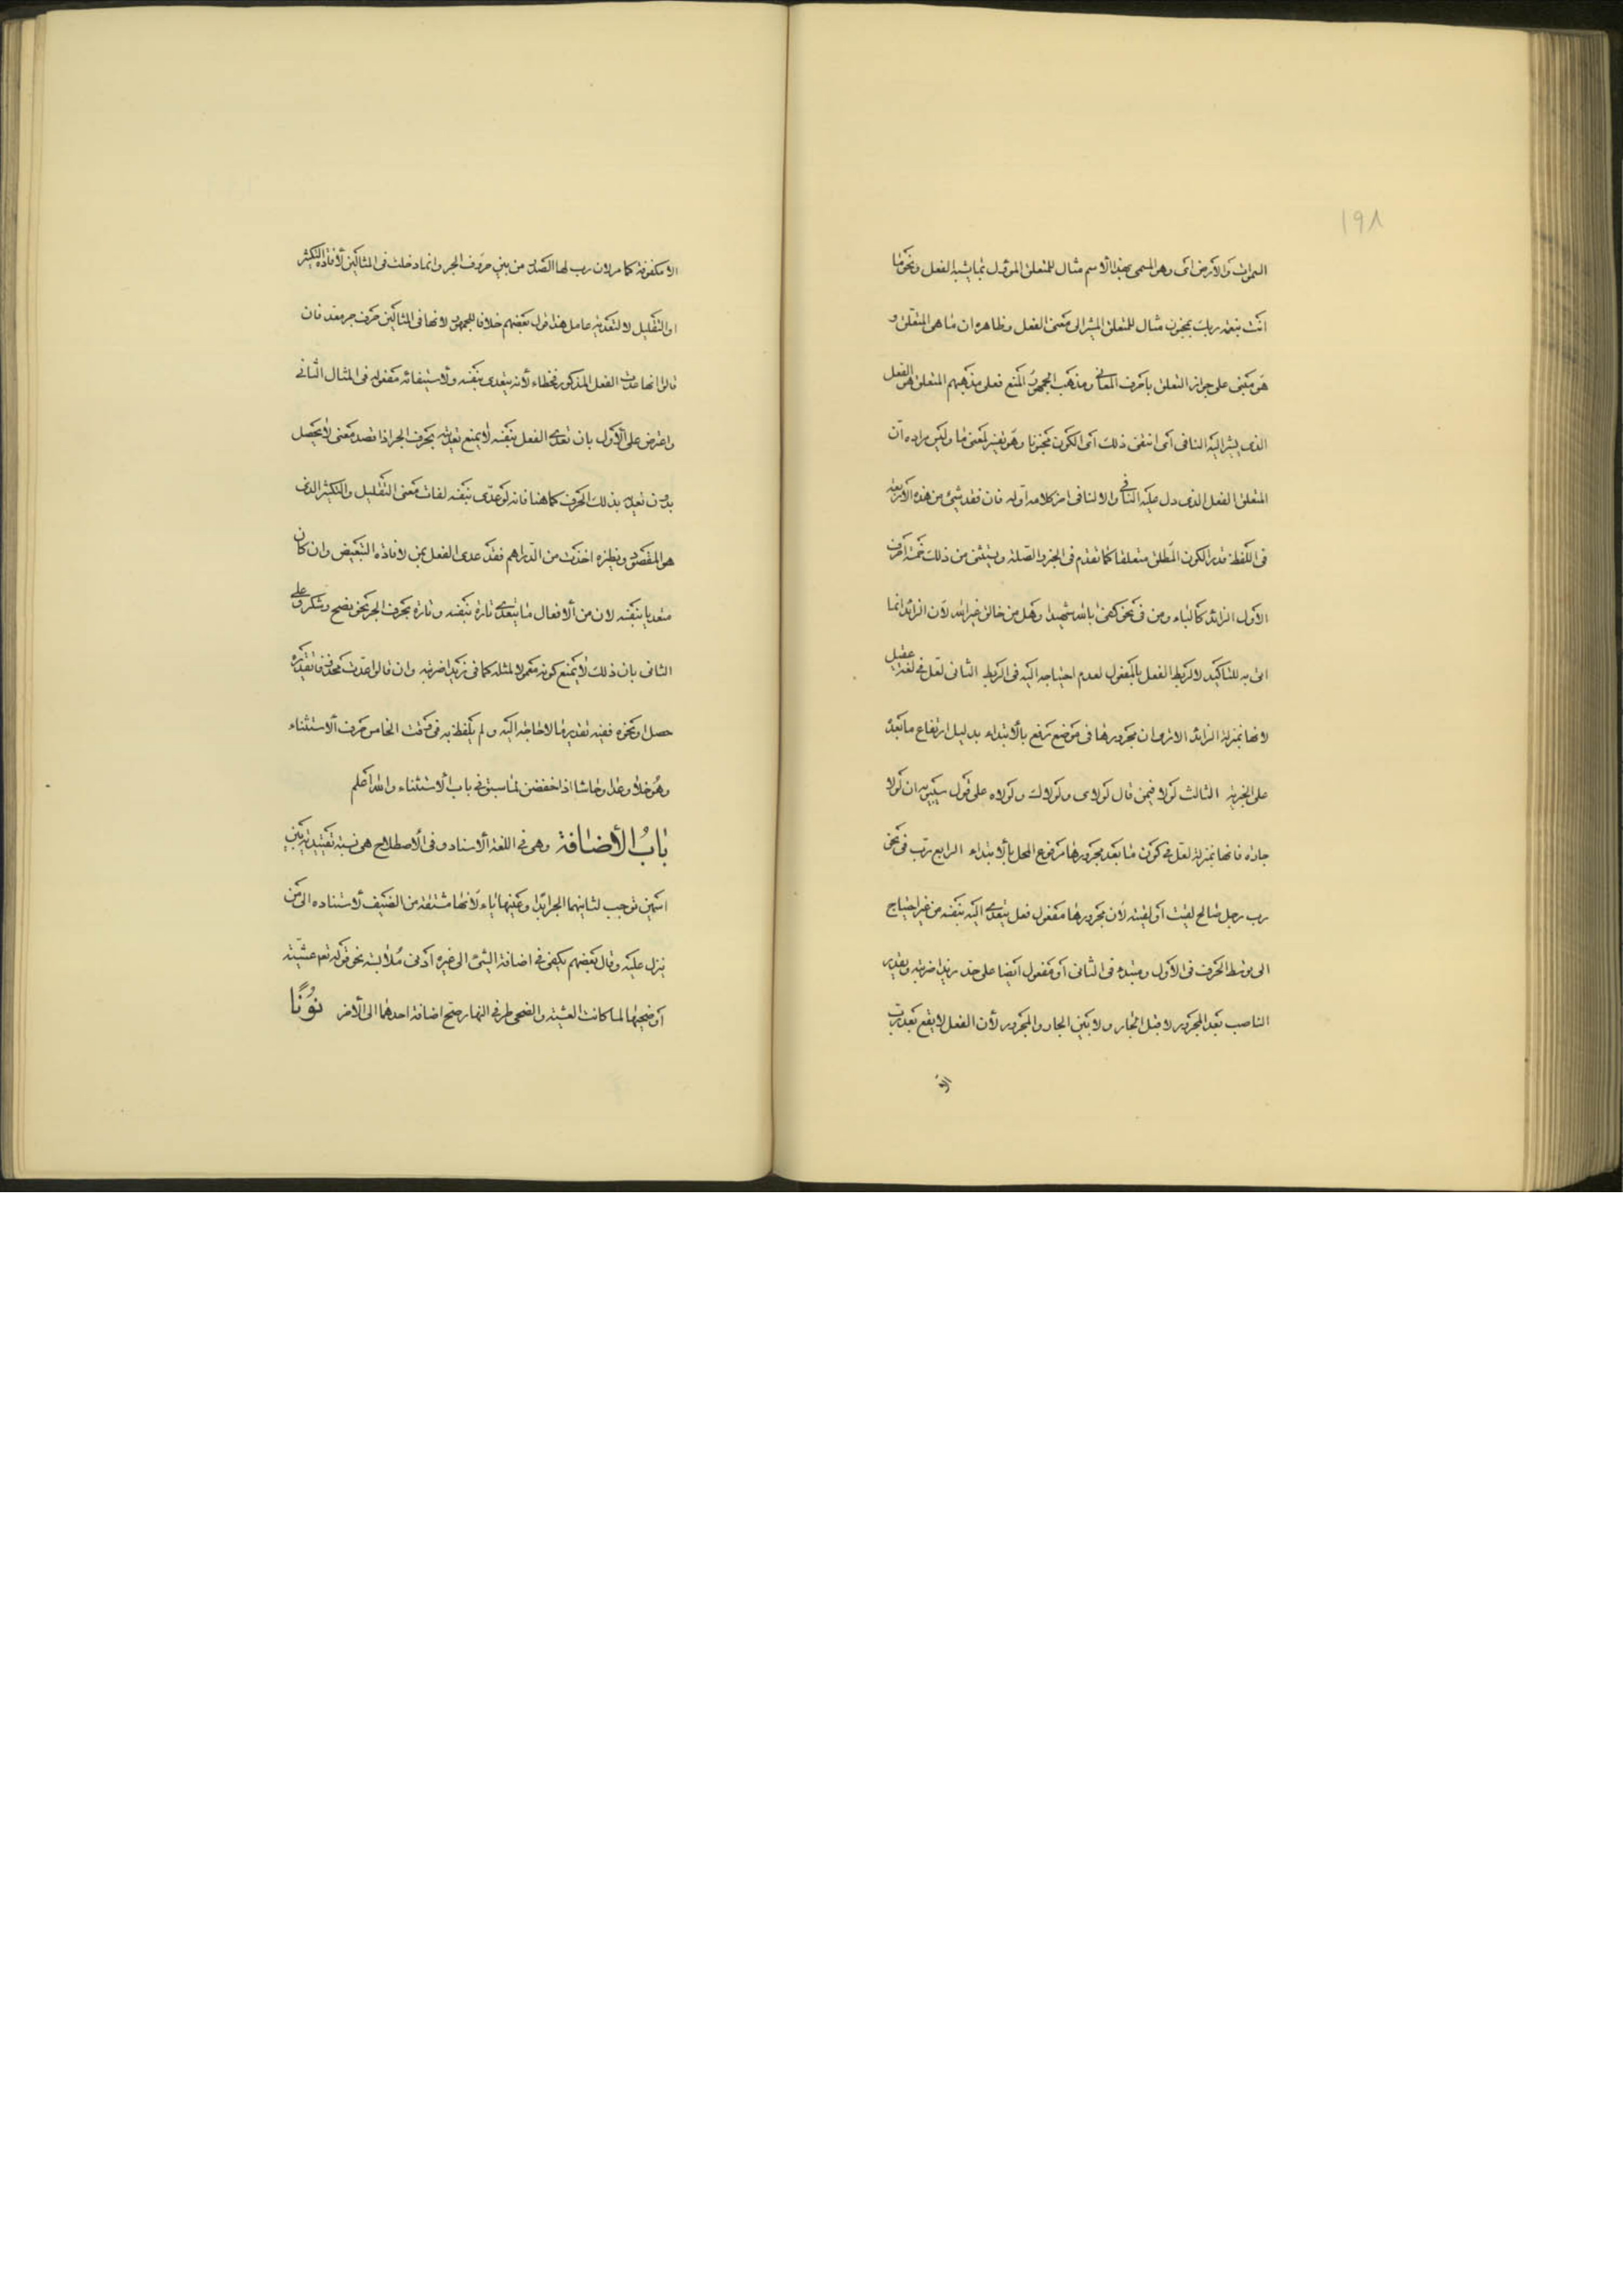 ١٩٨
السموات والارض اى وهو المسمى بهذا الاسم مثال للمتعلق المؤول بما يشبه الفعل ونحو ما
انت بنعمة ربك بمجنون مثال للمتعلق المشير الى معنى الفعل وظاهره ان ما هى المتعلق و
هو مبنى على جواز التعلق باحرف المعانى ومذهب الجمهور المنع فعلى مذهبهم المتعلق هو الفعل
الذى يشير اليه النافى اى انتفى ذلك اى الكون مجنونا وهو تفسير لمعنى ما وليس مراده ان
المتعلق الفعل الذى دل عليه النافى والا لنافى اخر كلامه اوله فان فقد شئ من هذه الاربعة
فى اللفظ قدر الكون المطلق متعلقا كما تقدم فى الخبر والصلة ويستثنى من ذلك خمسة احرف
الاول الزائد كالباء ومن فى نحو كفى بالله شهيدا وهل من خالق غير الله لان الزائد انما
اتى به للتاكيد لا لربط الفعل بالمفعول لعدم احتياجه اليه فى الربط الثانى لعل فى لغة عقيل
لانها بمنزلة الزائد الا ترى ان مجرورها فى موضع رفع بالابتداء بدليل ارتفاع ما بعد
على الخبرية الثالث لولا فيمن قال لولاى ولولاك ولولاه على قول سيبويه ان لولا
جارة فانها بمنزلة لعل فى كون ما بعد مجرورها مرفوع المحل بالابتداء الرابع رب فى نحو
رب رجل صالح لقيت او لقيته لان مجرورها مفعول فعل يتعدى اليه بنفسه من غير احتياج
الى توسط الحرف فى الاول ومبتدء فى الثانى او مفعول ايضا على حد زيدا ضربته ويقدر
الناصب بعد المجرور لا قبل الجار ولا بين الجار والمجرور لان الفعل لا يقع بعد رب
الا
الا مكفوفة كما مر لان رب لها الصدر من بين حروف الجر وانما دخلت فى المثالين لافادة التكثير
او التقليل لا لتعدية عامل هذا قول بعضهم خلافا للجمهور لانها فى المثالين حرف جر معد فان
قالوا انها عدت الفعل المذكور فخطاء لانه يتعدى بنفسه ولاستيفائه مفعوله فى المثال الثانى
واعترض على الاول بان تعدى الفعل بنفسه لا يمنع تعديته بحرف الجر اذا قصد معنى لا يحصل
بدون تعديه بذلك الحرف كما هنا فانه لو عدى بنفسه لفات معنى التقليل والتكثير الذى
هو المقصود ونظيره اخذت من الدراهم فقد عدى الفعل بمن لافادة التبعيض وان كان
متعديا بنفسه لان من الافعال ما يتعدى تارة بنفسه وتارة بحرف الجر نحو نصح وشكر وعلى
الثانى بان ذلك لا يمنع كونه معمولا لمثله كما فى زيدا ضربته وان قالوا عدت محذوفا تقديره
حصل او نحوه ففيه تقدير ما لا حاجة اليه ولم يلفظ به فى وقت الخامس حرف الاستثناء
وهو خلا وعدا وحاشا اذا خفضن لما سبق فى باب الاستثناء والله اعلم
باب الأضافة وهى فى اللغة الاسناد وفى الاصطلاح هى نسبة تقييدية بين
اسمين توجب لثانيهما الجر ابدا وعينها ياء لانها مشتقة من الضيف لاستناده الى من
ينزل عليه وقال بعضهم يكفى فى اضافة الشئ الى غيره ادنى ملابسة نحو قوله تعم عشية
او ضحيها لما كانت العشية والضحى طرفى النهار صح اضافة احدهما الى الاخر نونًا